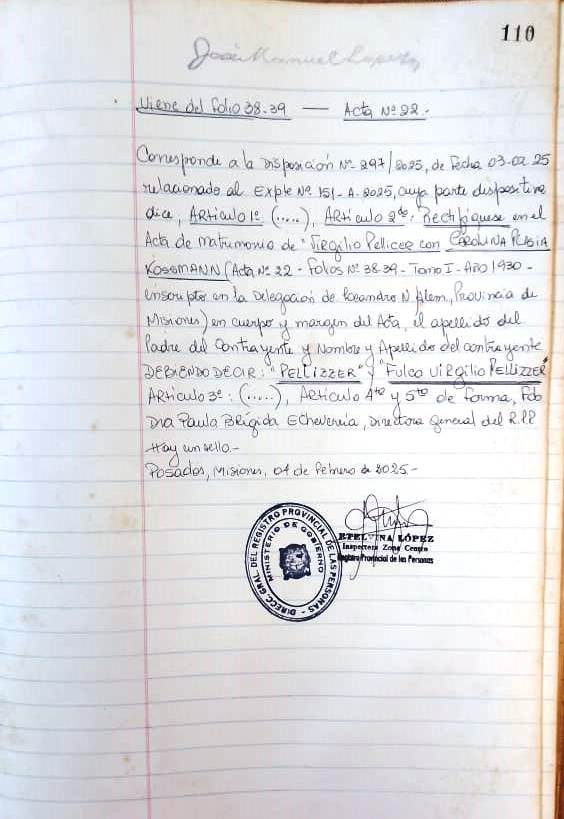 110
José Manuel
Viene del folio 38-39 — Acta Nº 22.-
Corresponde a la Disposición Nº 297/2025, de fecha 03-02-25
relacionado al Expte Nº 151-A-2025, cuya parte dispositiva
dice, Artículo 1º (.....), Artículo 2do: Rectifíquese en el
Acta de matrimonio de "Virgilio Pellicer con CAROLINA
KOSSMANN (Acta Nº 22 - Folios Nº 38-39 - Tomo I - Año 1930 -
inscripto en la Delegación de Leandro N. Alem, Provincia de
Misiones) en cuerpo y margen del Acta, el apellido del
Padre del Contrayente y Nombre y Apellido del contrayente
DEBIENDO DECIR: "PELLIZZER" y "Fulco Virgilio PELLIZZER"
Artículo 3º: (.....), Artículo 4to y 5to de forma, Fdo
Dra Paula Brígida Echeverria, Directora General del R.P.P
Hay un sello.-
Posadas, Misiones, 04 de Febrero de 2025-
DIRECC. GRAL. DEL REGISTRO PROVINCIAL DE LAS PERSONAS -
MINISTERIO DE GOBIERNO
LÓPEZ
Inspectora Zona Centro
Registro Provincial de las Personas